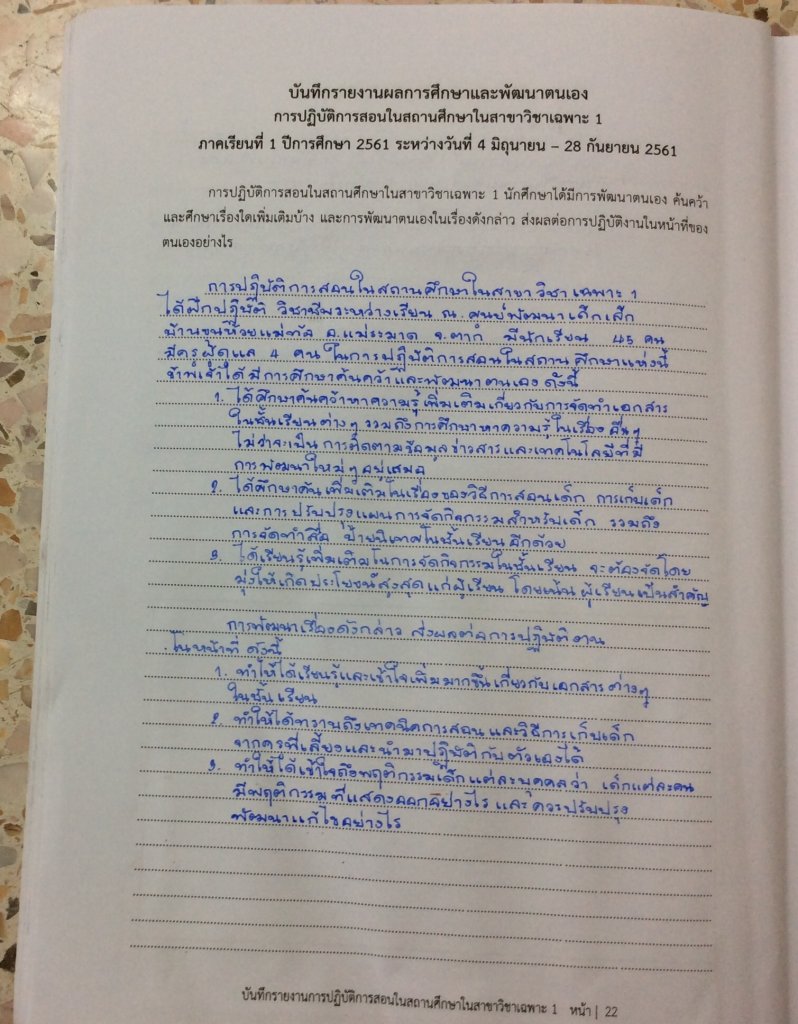 บันทึกรายงานผลการศึกษาและพัฒนาตนเอง
การปฏิบัติการสอนในสถานศึกษาในสาขาวิชาเฉพาะ 1
ภาคเรียนที่ 1 ปีการศึกษา 2561 ระหว่างวันที่ 4 มิถุนายน – 28 กันยายน 2561
การปฏิบัติการสอนในสถานศึกษาในสาขาวิชาเฉพาะ 1 นักศึกษาได้มีการพัฒนาตนเอง ค้นคว้า
และศึกษาเรื่องใดเพิ่มเติมบ้าง และการพัฒนาตนเองในเรื่องดังกล่าว ส่งผลต่อการปฏิบัติงานในหน้าที่ของ
ตนเองอย่างไร
การปฏิบัติการสอนในสถานศึกษาในสาขาวิชาเฉพาะ 1
ได้ฝึกปฏิบัติ วิชาชีพระหว่างเรียน ณ ศูนย์พัฒนาเด็กเล็ก
บ้านขุนห้วยแม่ อ.แม่ระมาด จ.ตาก มีนักเรียน 45 คน
มีครูผู้ดูแล 4 คน ในการปฏิบัติการสอนในสถานศึกษาแห่งนี้
ข้าพเจ้าได้มีการศึกษาค้นคว้าและพัฒนาตนเอง ดังนี้
1. ได้ศึกษาค้นคว้าหาความรู้เพิ่มเติมเกี่ยวกับการจัดทำเอกสาร
ในชั้นเรียนต่างๆ รวมถึงการศึกษาหาความรู้ในเรื่องอื่นๆ
ไม่ว่าจะเป็น การติดตามข้อมูลข่าวสารและเทคโนโลยีที่มี
การพัฒนาใหม่ๆอยู่เสมอ
2. ได้ศึกษาค้นเพิ่มเติมในเรื่องของวิธีการสอนเด็ก การเก็บเด็ก
และการปรับปรุงแผนการจัดกิจกรรมสำหรับเด็ก รวมถึง
การจัดทำสื่อ ป้ายนิเทศในชั้นเรียนอีกด้วย
3. ได้เรียนรู้เพิ่มเติมในการจัดกิจกรรมในชั้นเรียน จะต้องจัดโดย
มุ่งให้เกิดประโยชน์สูงสุดแก่ผู้เรียน โดยเน้น ผู้เรียนเป็นสำคัญ
การพัฒนาเรื่องดังกล่าว ส่งผลต่อการปฏิบัติงาน
ในหน้าที่ ดังนี้
1. ทำให้ได้เรียนรู้และเข้าใจเพิ่มมากขึ้นเกี่ยวกับเอกสารต่างๆ
ในชั้นเรียน
2. ทำให้ได้ทราบถึงเทคนิคการสอน และวิธีการเก็บเด็ก
จากครูพี่เลี้ยงและนำมาปฏิบัติกับตัวเองได้
3. ทำให้ได้เข้าใจถึงพฤติกรรมเด็กแต่ละบุคคลว่า เด็กแต่ละคน
มีพฤติกรรมที่แสดงออกอย่างไร และควรปรับปรุง
พัฒนาแก้ไขอย่างไร
บันทึกรายงานการปฏิบัติการสอนในสถานศึกษาในสาขาวิชาเฉพาะ 1 หน้า | 22